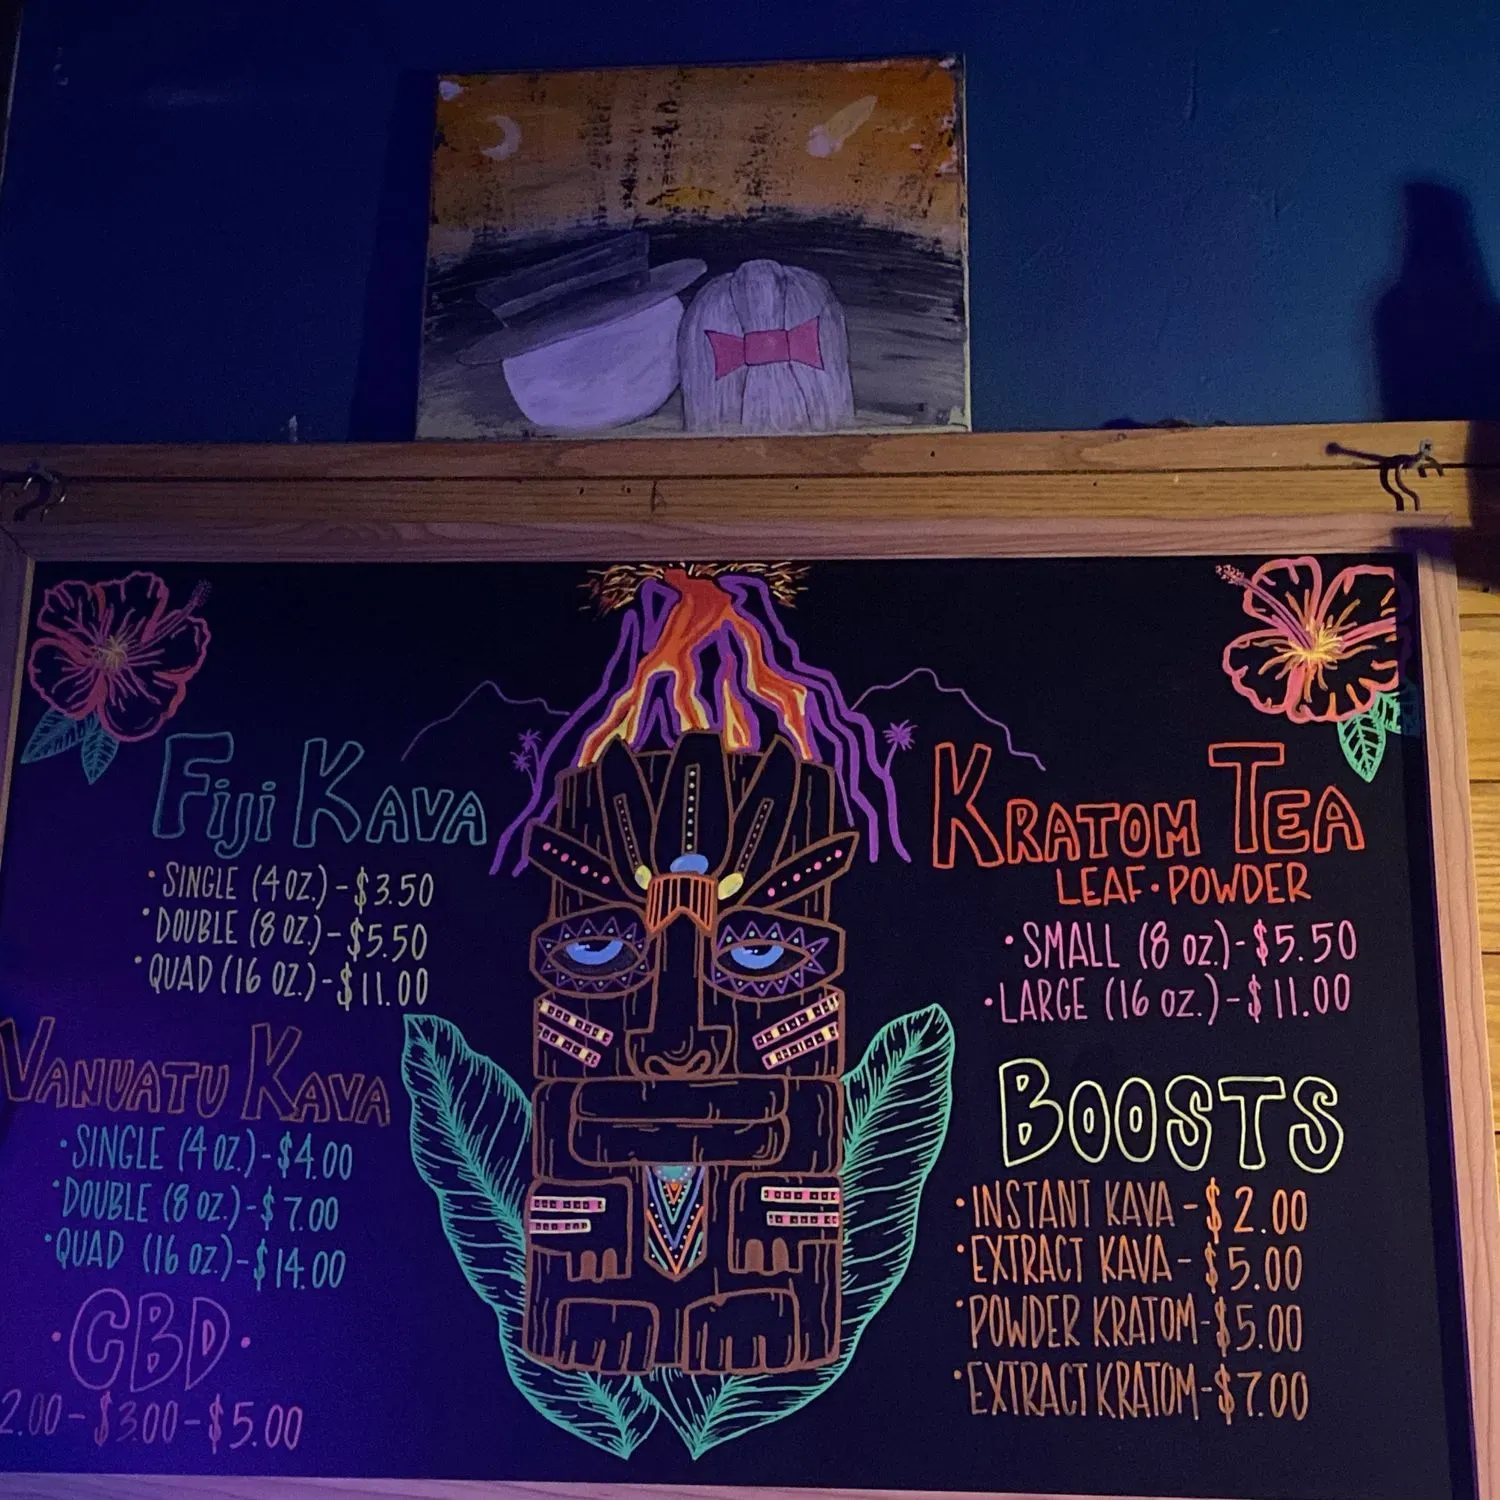 FIJI KAVA
• SINGLE (4 OZ.) - $3.50
• DOUBLE (8 OZ.) - $5.50
• QUAD (16 OZ.) - $11.00
VANUATU KAVA
• SINGLE (4 OZ.) - $4.00
• DOUBLE (8 OZ.) - $7.00
• QUAD (16 OZ.) - $14.00
• CBD •
2.00 - $3.00 - $5.00
KRATOM TEA
LEAF • POWDER
• SMALL (8 OZ.) - $5.50
• LARGE (16 OZ.) - $11.00
BOOSTS
• INSTANT KAVA - $2.00
• EXTRACT KAVA - $5.00
• POWDER KRATOM - $5.00
• EXTRACT KRATOM - $7.00